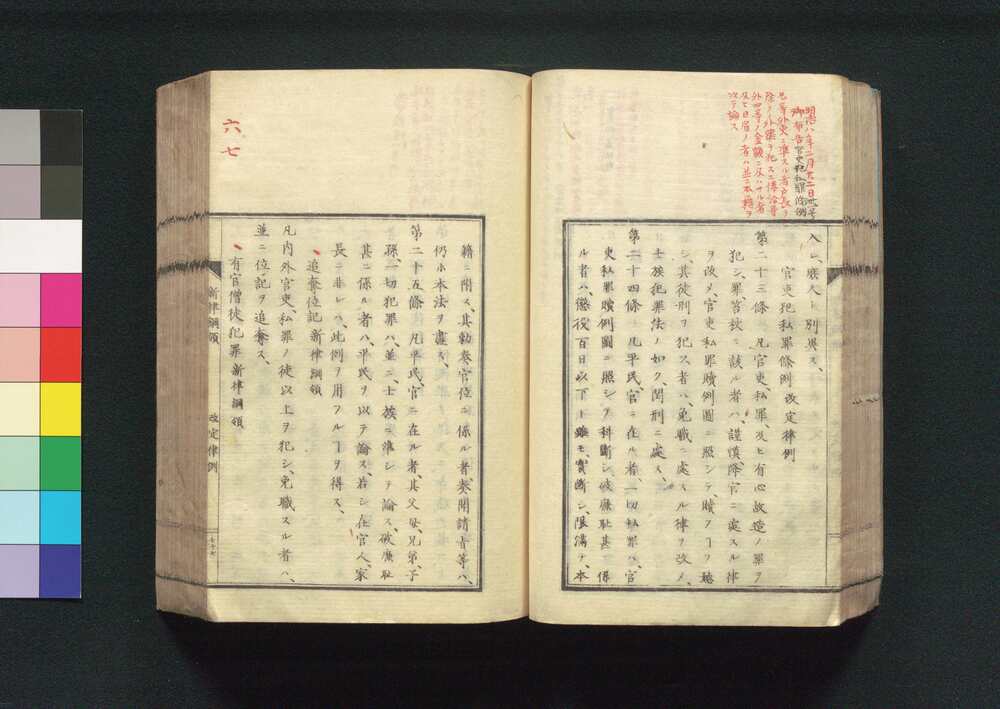 明治八年二月廿二日丗号
御布告官吏犯私罪条例
等外吏ニ準スル者戸長ヲ
除ク
外四等ノ金額ニ及ハサル者
及ヒ日雇ノ者ハ並ニ本籍ヲ
以テ論ス
入シ、庶人ト別異ス、
官吏犯私罪條例 改定律例
第二十三條 凡官吏、私罪、及ヒ有心故造ノ罪ヲ
犯シ、罪、笞杖ニ該ル者ハ、謹慎、降官ニ處スル律
ヲ改メ、官吏私罪贖例圖ニ照シテ、贖フヿヲ聽
シ、其徒刑ヲ犯ス者ハ、免職ニ處スル律ヲ改メ、
士族犯罪法ノ如ク、閏刑ニ處ス、
第二十四條 凡平民、官ニ在ル者、一切私罪ハ、官
吏私罪贖例圖ニ照シテ科斷シ、破廉耻甚ニ係
ル者ハ、懲役百日以下ト雖モ、實斷シ、限滿テ、本
籍ニ附ス、其勅奏官位ニ係ル者、奏聞請旨等ハ、
仍ホ本法ヲ盡ス、
第二十五條 凡平民、官ニ在ル者、其父母兄弟、子
孫、一切犯罪ハ、並ニ士族ニ準シテ論ス、破廉耻
甚ニ係ル者ハ、平民ヲ以テ論ス、若シ在官人、家
長ニ非レハ、此例ヲ用フルヿヲ得ス、
追奪位記 新律綱領
凡内外官吏、私罪ノ徒以上ヲ犯シ、免職スル者ハ、
並ニ位記ヲ追奪ス、
有官僧徒犯罪 新律綱領
新律綱領 改定律例
六、七